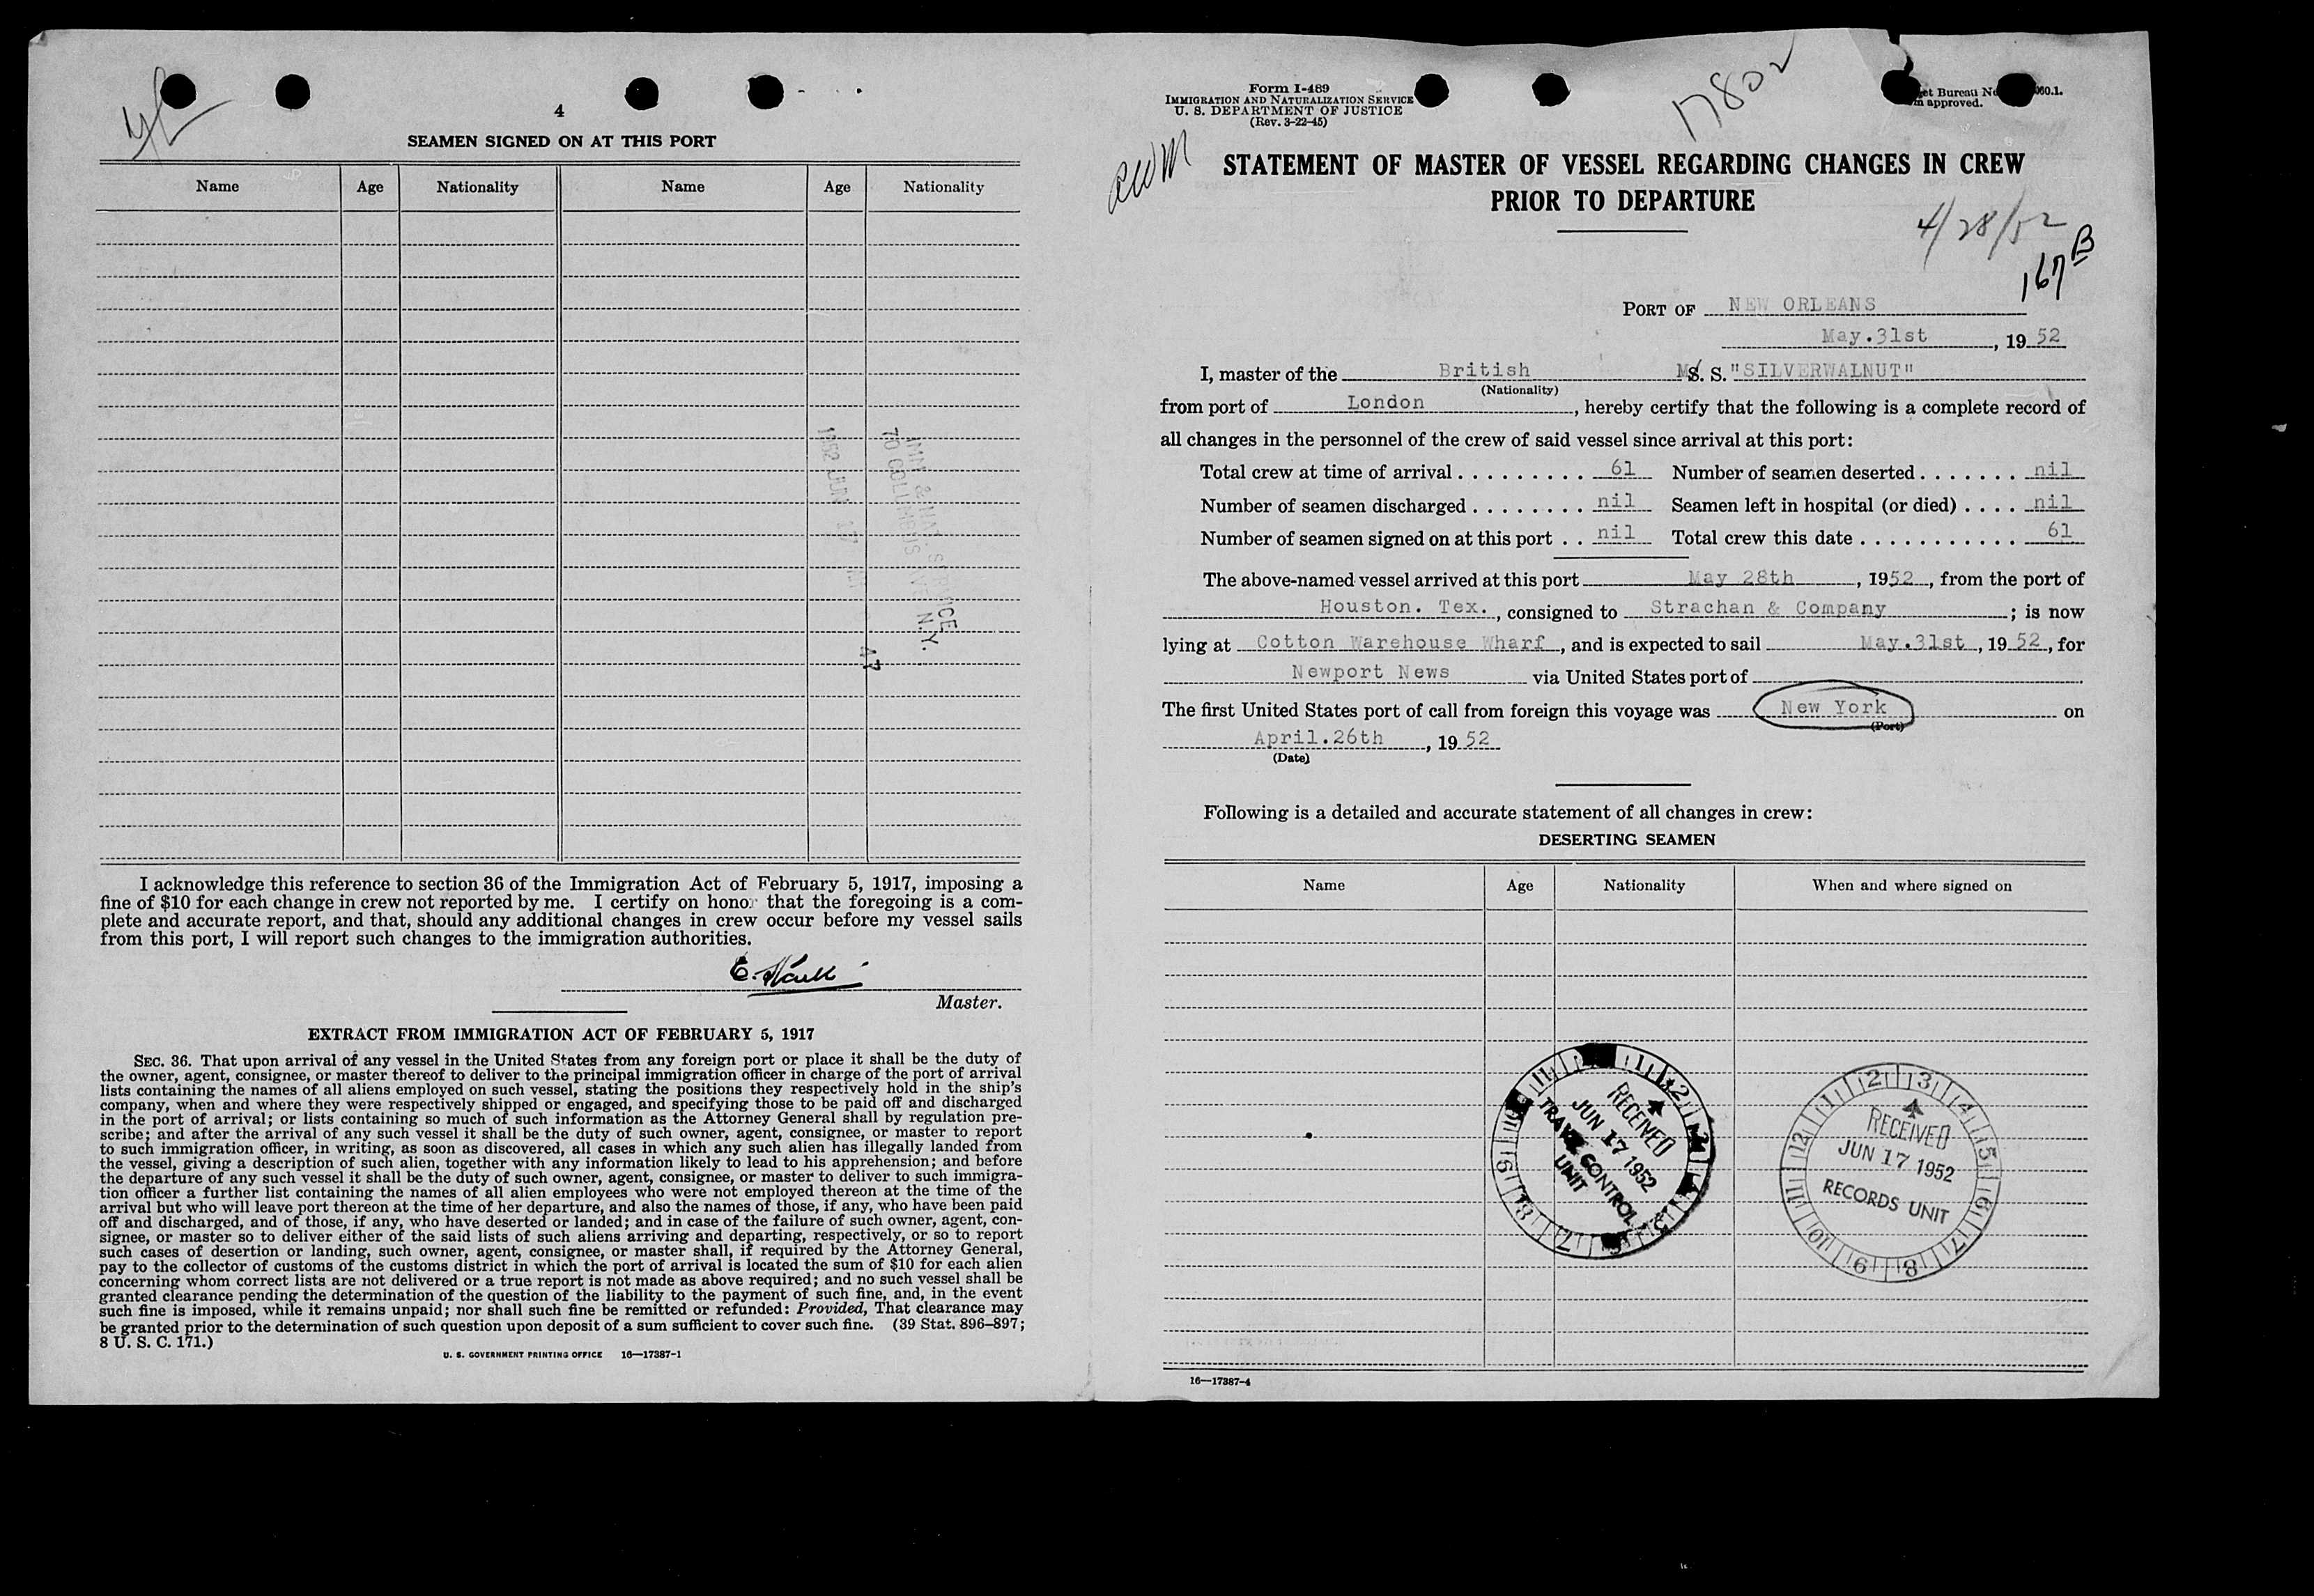 4
SEAMEN SIGNED ON AT THIS PORT
Name Age Nationality Name Age Nationality
IMM & NAT. SERVICE
70 COLUMBUS AVE N.Y.
1952 JUN 17 AM
47
I acknowledge this reference to section 36 of the Immigration Act of February 5, 1917, imposing a
fine of $10 for each change in crew not reported by me. I certify on honor that the foregoing is a com-
plete and accurate report, and that, should any additional changes in crew occur before my vessel sails
from this port, I will report such changes to the immigration authorities.
E.
Master.
EXTRACT FROM IMMIGRATION ACT OF FEBRUARY 5, 1917
SEC. 36. That upon arrival of any vessel in the United States from any foreign port or place it shall be the duty of
the owner, agent, consignee, or master thereof to deliver to the principal immigration officer in charge of the port of arrival
lists containing the names of all aliens employed on such vessel, stating the positions they respectively hold in the ship's
company, when and where they were respectively shipped or engaged, and specifying those to be paid off and discharged
in the port of arrival; or lists containing so much of such information as the Attorney General shall by regulation pre-
scribe; and after the arrival of any such vessel it shall be the duty of such owner, agent, consignee, or master to report
to such immigration officer, in writing, as soon as discovered, all cases in which any such alien has illegally landed from
the vessel, giving a description of such alien, together with any information likely to lead to his apprehension; and before
the departure of any such vessel it shall be the duty of such owner, agent, consignee, or master to deliver to such immigra-
tion officer a further list containing the names of all alien employees who were not employed thereon at the time of the
arrival but who will leave port thereon at the time of her departure, and also the names of those, if any, who have been paid
off and discharged, and of those, if any, who have deserted or landed; and in case of the failure of such owner, agent, con-
signee, or master so to deliver either of the said lists of such aliens arriving and departing, respectively, or so to report
such cases of desertion or landing, such owner, agent, consignee, or master shall, if required by the Attorney General,
pay to the collector of customs of the customs district in which the port of arrival is located the sum of $10 for each alien
concerning whom correct lists are not delivered or a true report is not made as above required; and no such vessel shall be
granted clearance pending the determination of the question of the liability to the payment of such fine, and, in the event
such fine is imposed, while it remains unpaid; nor shall such fine be remitted or refunded: Provided, That clearance may
be granted prior to the determination of such question upon deposit of a sum sufficient to cover such fine. (39 Stat. 896–897;
8 U. S. C. 171.)
U. S. GOVERNMENT PRINTING OFFICE 16—17387-1
Form I-489
IMMIGRATION AND NATURALIZATION SERVICE
U. S. DEPARTMENT OF JUSTICE
(Rev. 3-22-45)
17802
et Bureau No 060.1.
approved.
STATEMENT OF MASTER OF VESSEL REGARDING CHANGES IN CREW
PRIOR TO DEPARTURE
4/28/52
167 B
PORT OF NEW ORLEANS
May.31st, 19 52
I, master of the British M S. S. "SILVERWALNUT"
(Nationality)
from port of London, hereby certify that the following is a complete record of
all changes in the personnel of the crew of said vessel since arrival at this port:
Total crew at time of arrival . . . . . . . . . 61 Number of seamen deserted . . . . . . . nil
Number of seamen discharged . . . . . . . . nil Seamen left in hospital (or died) . . . . nil
Number of seamen signed on at this port . . nil Total crew this date . . . . . . . . . . . 61
The above-named vessel arrived at this port May 28th, 1952, from the port of
Houston. Tex., consigned to Strachan & Company; is now
lying at Cotton Warehouse Wharf, and is expected to sail May.31st, 19 52, for
Newport News via United States port of
The first United States port of call from foreign this voyage was New York on
(Port)
April.26th, 19 52
(Date)
Following is a detailed and accurate statement of all changes in crew:
DESERTING SEAMEN
Name Age Nationality When and where signed on
RECEIVED
JUN 17 1952
TRAVEL CONTROL
UNIT
RECEIVED
JUN 17 1952
RECORDS UNIT
16—17387-4